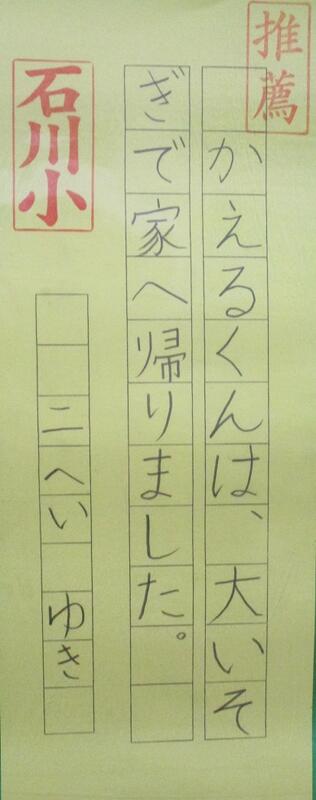 推薦
かえるくんは、大いそ
ぎで家へ帰りました。
石川小
二へい ゆき